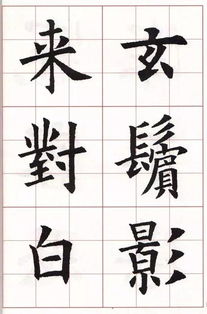 玄鬢影
来對白